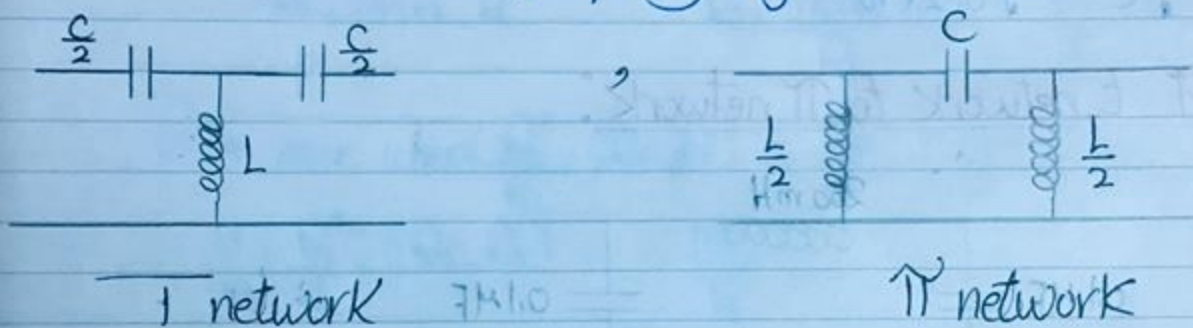 C/2
C/2
L
,
C
L/2
L/2
T network
π network